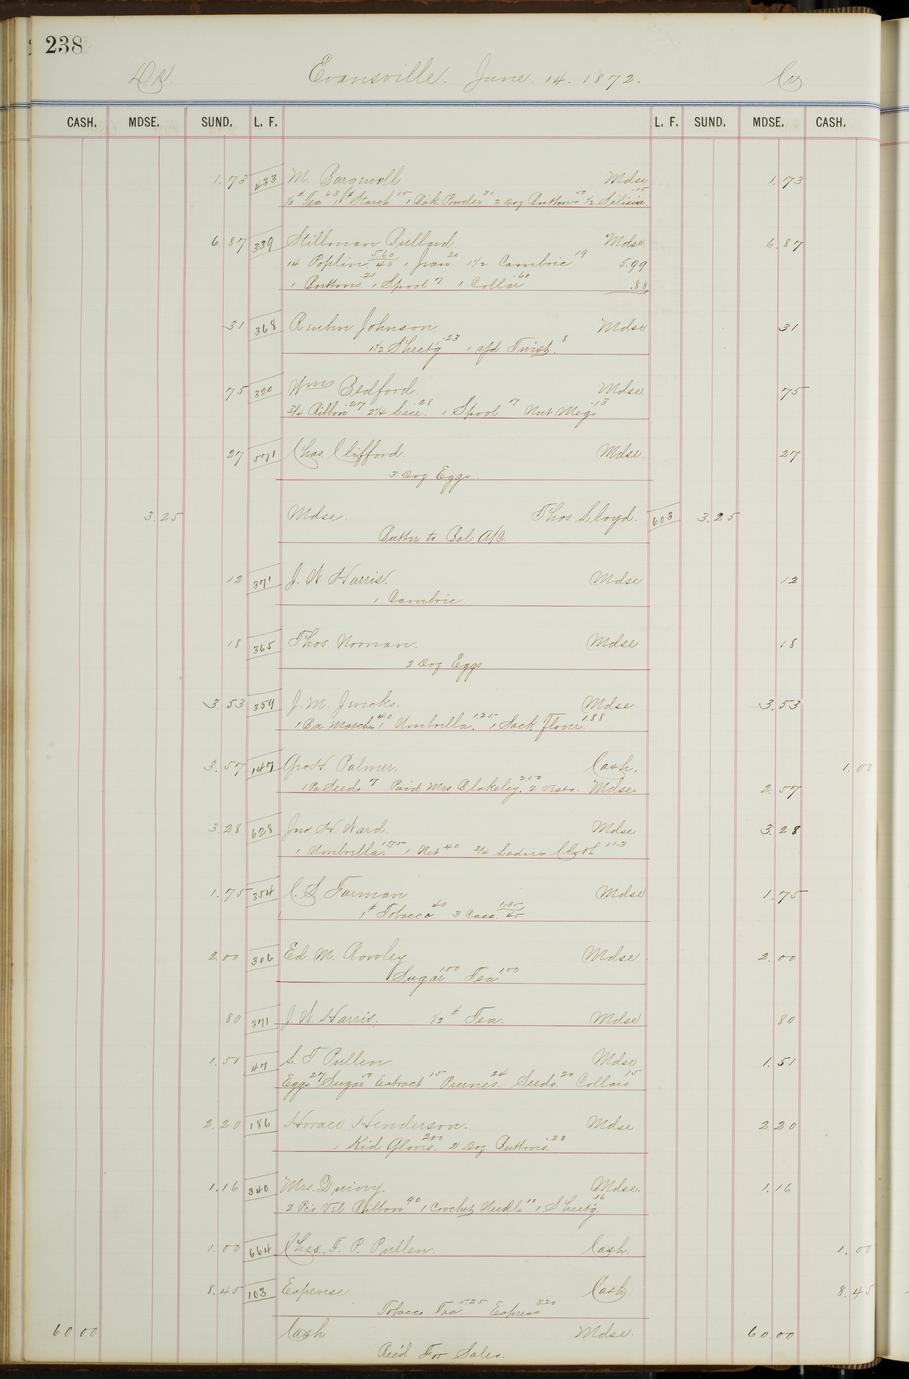 238
Dr Evansville. June 14. 1872. Cr
CASH. MDSE. SUND. L. F. L. F. SUND. MDSE. CASH.
1.73 433 M. Bargewell Mdse 1.73
½# Tea 63 1# Starch 15 1 Bak Powder 30 2 Doz Buttons 50 ½ Silicia 15
6.87 339 Stillman Bullard Mdse 6.87
14 Poplin 5.60/40 1 Jean 20 1½ Cambric 19 5.99
1 Buttons 21 1 Spool 7 1 Collar 60 .88
31 368 Reuben Johnson. Mdse 31
1½ Sheet'g .23 1 Twist 8
75 320 Wm Bedford. Mdse 75
¾ Ribbon .27 2¼ Lace .28 1 Spool 7 Nut Megs .13
27 571 Chas. Clifford. Mdse. 27
3 Doz Eggs.
3.25 Mdse. Thos Lloyd. 603 3.25
Butter to Bal. A/C
12 371 J. W Harris. Mdse 12
1 Cambric.
18 365 Thos. Noonan. Mdse 18
2 Doz Eggs
3.53 359 J. M. Jencks. Mdse 3.53
1 Bx Match 40 1 Umbrella 1.25 1 Sack Flour 1.88
3.57 147 Geo. H. Palmer. Cash. 1.00
1 Pa Seeds 7 Paid Mrs Blakeley. 2 Vests. 2.50 Mdse 2.57
3.28 628 Jno. H. Ward. Mdse 3.28
1 Umbrella 1.75 1 Net 40 ¾ Ladies Cloth 1.13
1.75 354 C. S. Farman Mdse 1.75
1# Tobacco 40 3 Cass. 1.35/45
2.00 306 Ed. M. Rowley Mdse 2.00
Sugar 1.00 Tea 1.00
80 371 J. W Harris. ½# Tea. Mdse 80
1.51 47 S. T Pullen Mdse 1.51
Eggs 27 Sugar 50 Extract 15 Prunes. 24 Seeds. 20 Collars 15
2.20 186 Horace Henderson. Mdse 2.20
1 Kid Gloves. 2.00 2 Doz Buttons. .20
1.16 340 Mrs. Mdse. 1.16
2 Pcs Vel. Ribbon 90 1 Crochet Needle 10 1 Sheet'g 16
1.00 664 Chas. F. P. Pullen. Cash. 1.00
8.45 103 Expense. Cash 8.45
Tobacco Tax 5.25 Express 3.20
60.00 Cash Mdse. 60.00
Rec'd For Sales.